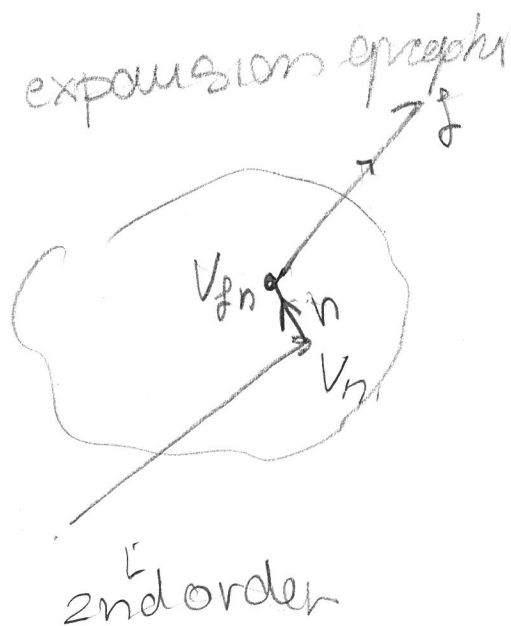 expansion graph
f
V_{fn}
n
V_{ni}
2nd order